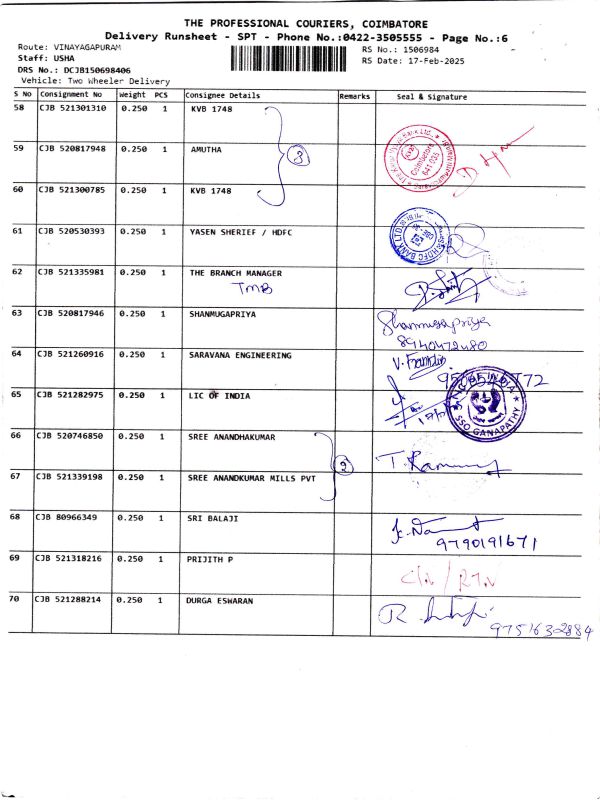 THE PROFESSIONAL COURIERS, COIMBATORE
Delivery Runsheet - SPT - Phone No.:0422-3505555 - Page No.:6
Route: VINAYAGAPURAM
Staff: USHA
DRS No.: DCJB150698406
Vehicle: Two Wheeler Delivery
RS No.: 1506984
RS Date: 17-Feb-2025
S No Consignment No Weight PCS Consignee Details Remarks Seal & Signature
58 CJB 521301310 0.250 1 KVB 1748
59 CJB 520817948 0.250 1 AMUTHA
3
60 CJB 521300785 0.250 1 KVB 1748
61 CJB 520530393 0.250 1 YASEN SHERIEF / HDFC
62 CJB 521335981 0.250 1 THE BRANCH MANAGER
TMB
63 CJB 520817946 0.250 1 SHANMUGAPRIYA Shanmugapriya
8940472480
64 CJB 521260916 0.250 1 SARAVANA ENGINEERING
65 CJB 521282975 0.250 1 LIC OF INDIA
SSO GANAPATHY
66 CJB 520746850 0.250 1 SREE ANANDHAKUMAR
2
67 CJB 521339198 0.250 1 SREE ANANDKUMAR MILLS PVT
68 CJB 80966349 0.250 1 SRI BALAJI
9790191671
69 CJB 521318216 0.250 1 PRIJITH P
70 CJB 521288214 0.250 1 DURGA ESWARAN
9751632884